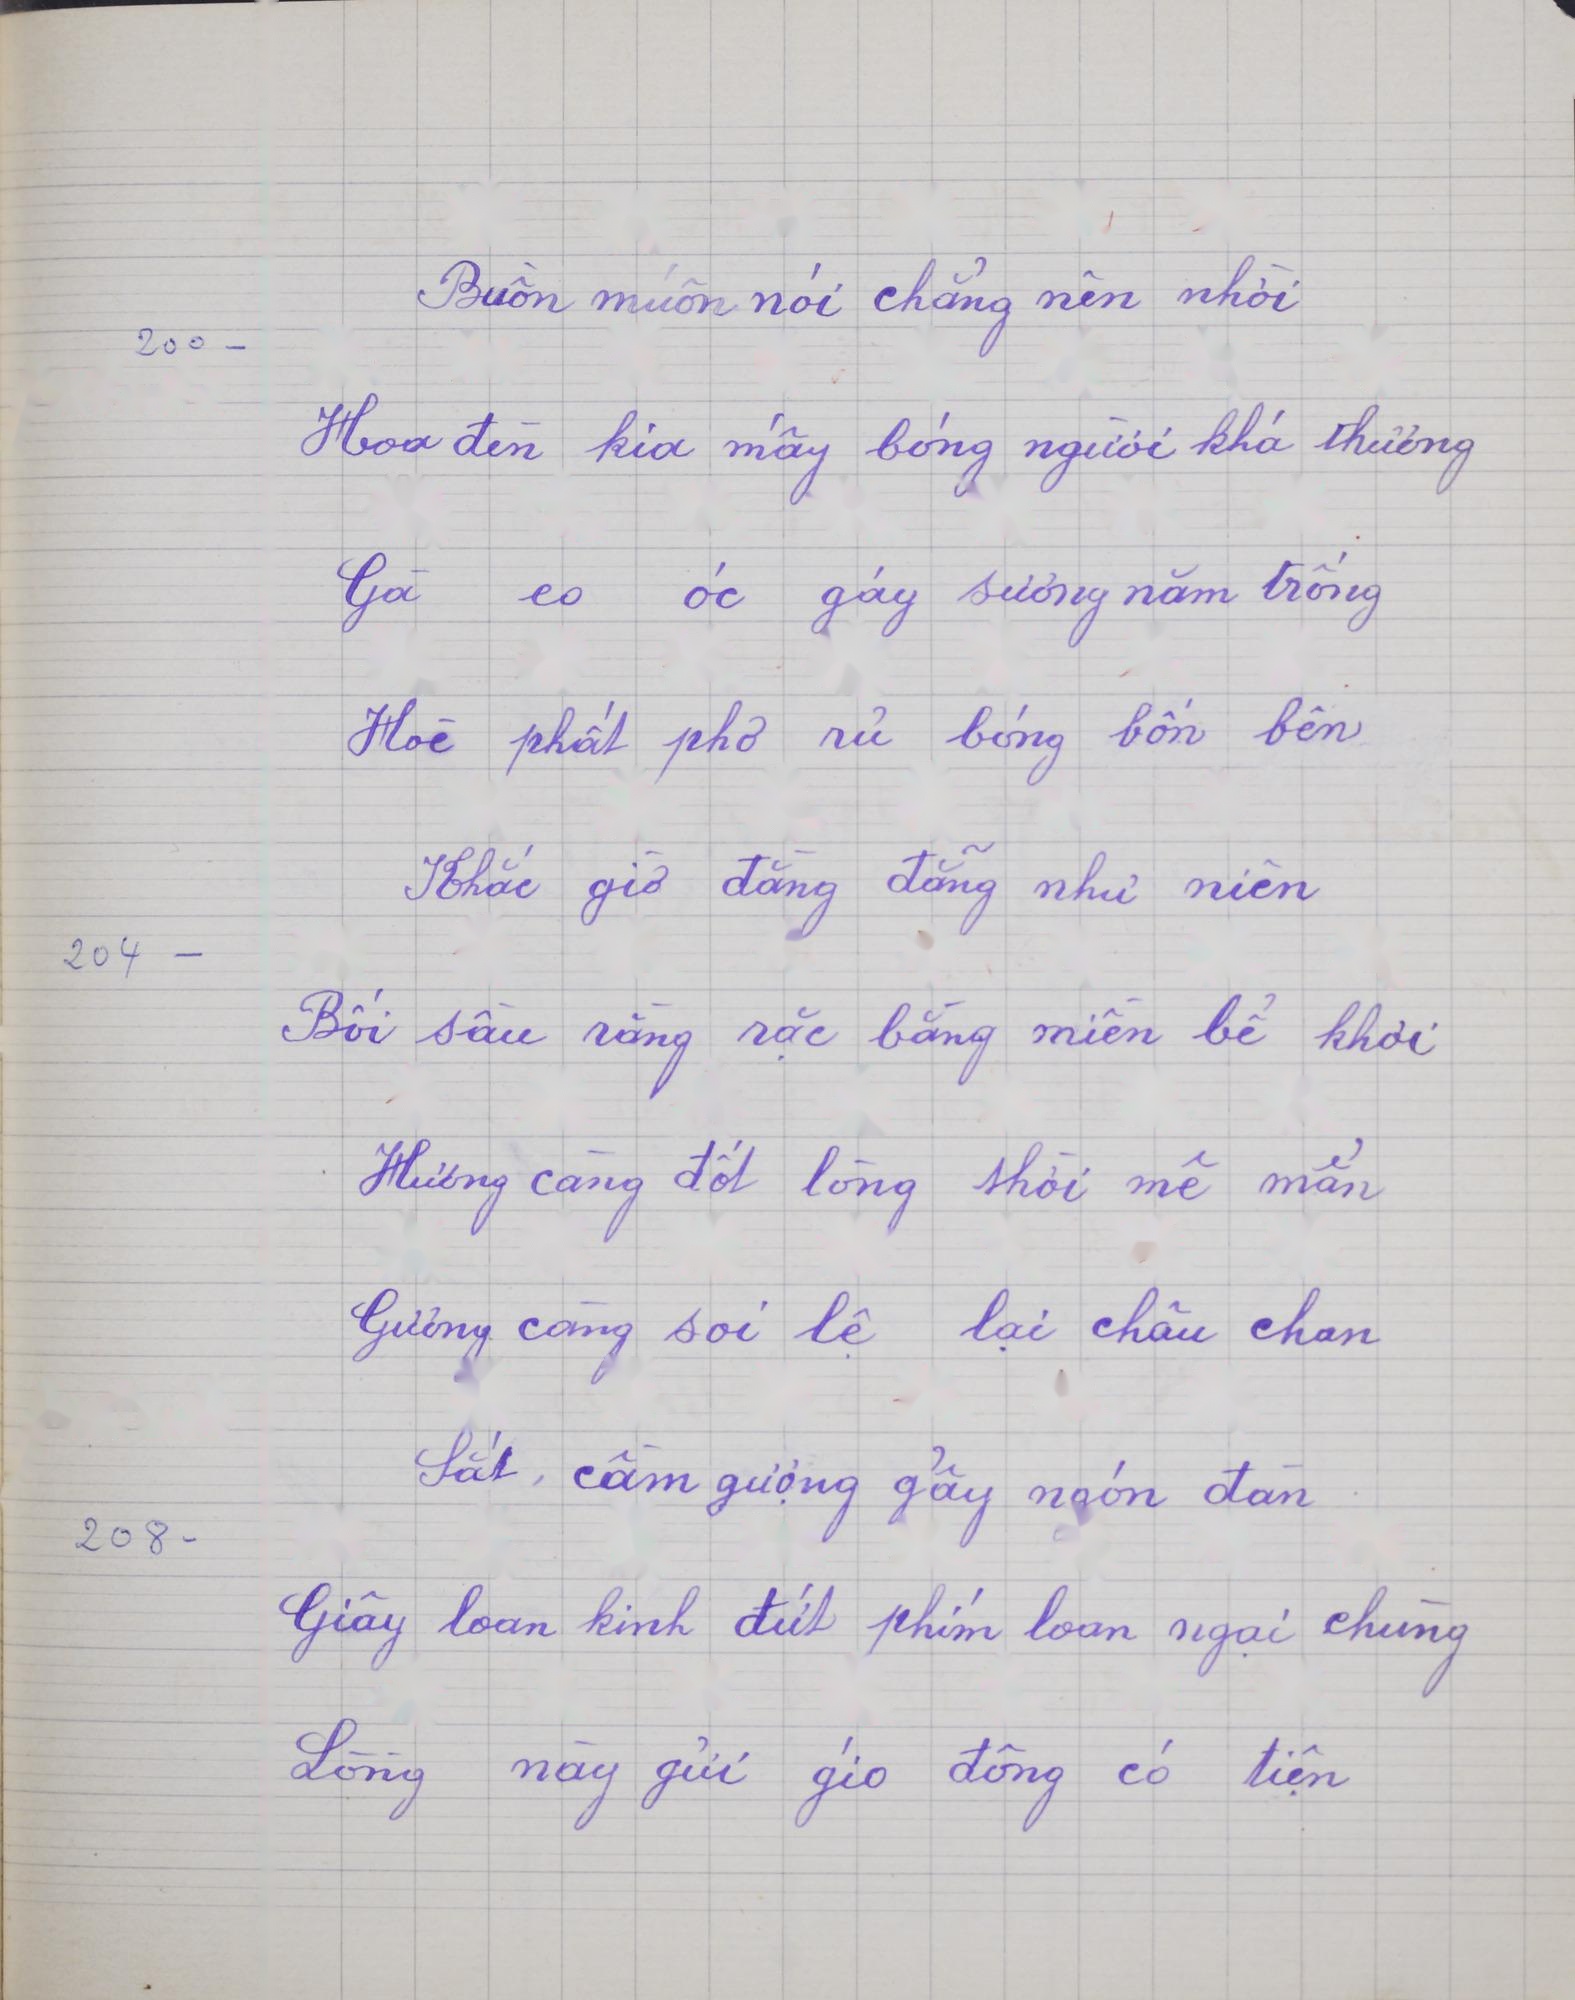 Buồn muốn nói chẳng nên nhời
200 -
Hoa đèn kia mấy bóng người khá thương
Gà eo óc gáy sương năm trống
Hoè phất phơ rủ bóng bốn bên
Khắc giờ đằng đẵng như niên
204 -
Bối sầu ràng rặc bằng miền bể khơi
Hương càng đốt lòng thời mê mẩn
Gương càng soi lệ lại chầu chan
Sắt, cầm gượng gẩy ngón đàn
208 -
Giây loan kinh đứt phím loan ngại chùng
Lòng này gửi gío đông có tiện